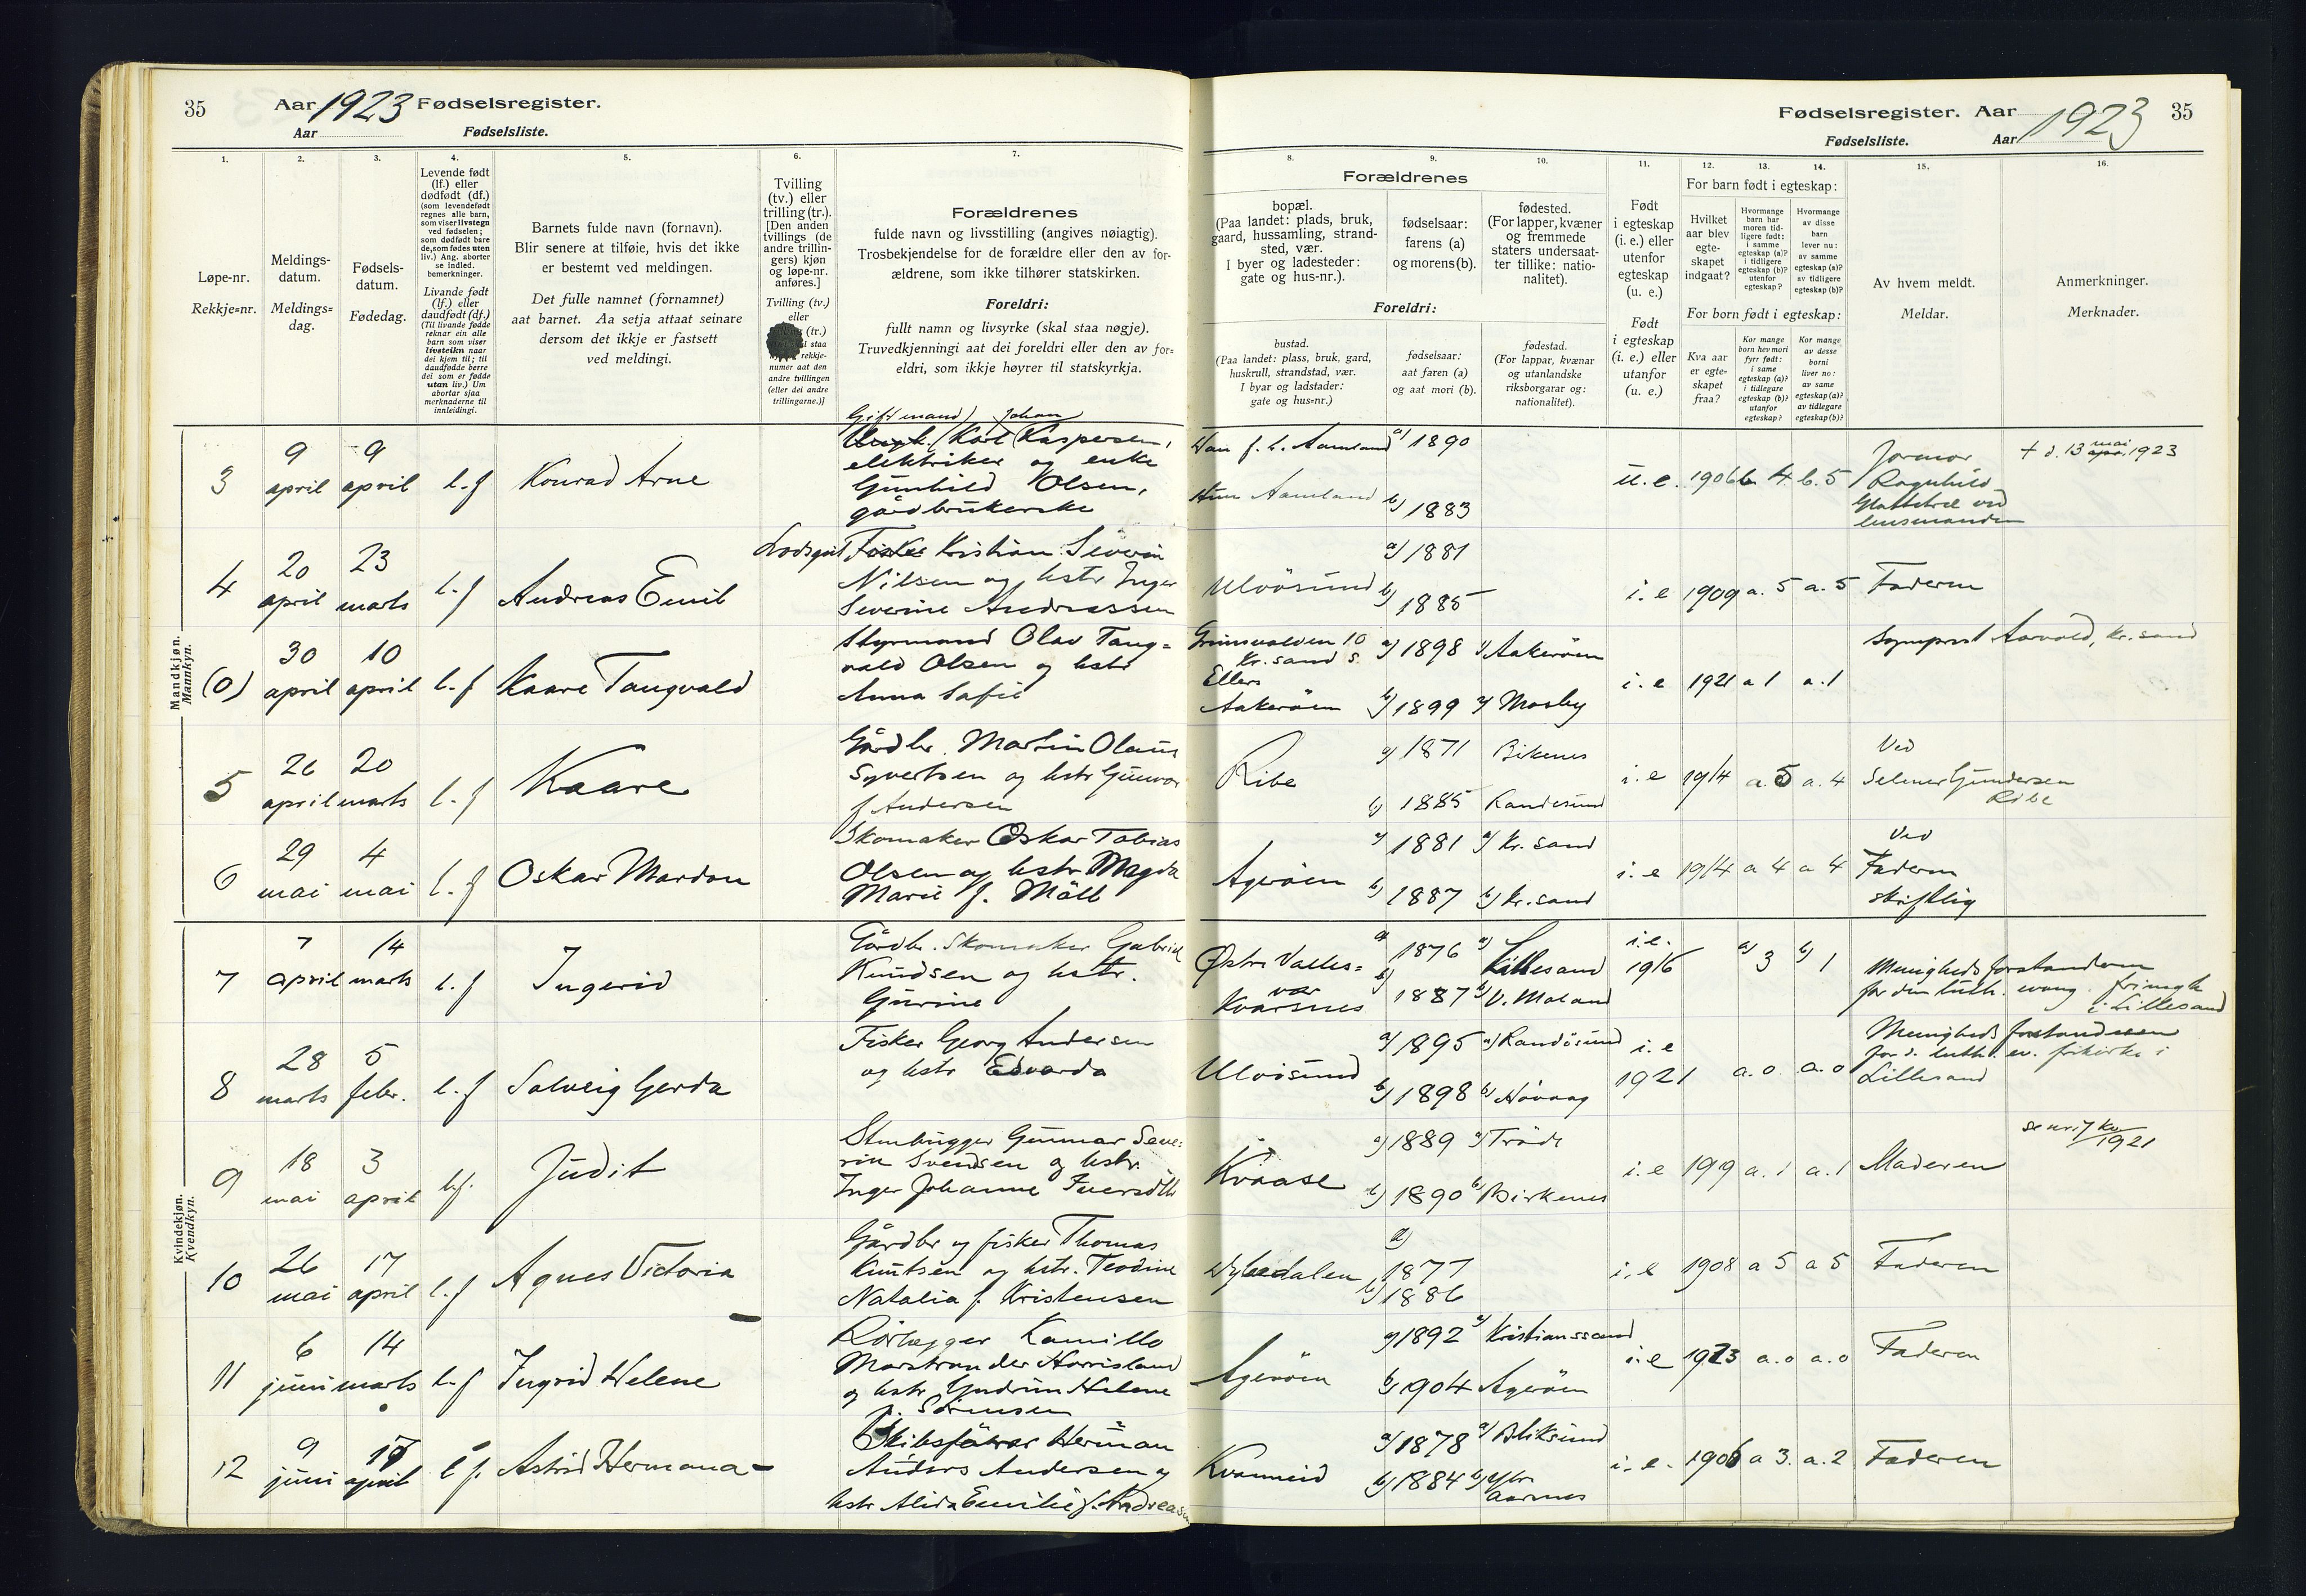 35 Aar 1923 Fødselsregister.
Aar Fødselsliste.
1. 2. 3. 4. 5. 6. 7.
Løpe-nr.
Rekkje=nr.
Meldings-
datum.
Meldings=
dag.
Fødsels-
datum.
Fødedag.
Levende født
(lf.) eller
dødfødt (df.)
(som levendefødt
regnes alle barn,
som viser livstegn
ved fødselen;
som dødfødt bare
de, som fødes uten
liv.) Ang. aborter
se indled.
bemerkninger.
Livande født
(lf.) eller
daudfødt (df.)
(Til livande fødde
reknar ein alle
barn som viser
livsteikn naar
dei kjem til; til
daudfødde berre
dei som er fødde
utan liv.) Um
abortar sjaa
merknaderne til
innleidingi.
Barnets fulde navn (fornavn).
Blir senere at tilføie, hvis det ikke
er bestemt ved meldingen.
Det fulle namnet (fornamnet)
aat barnet. Aa setja attaat seinare
dersom det ikkje er fastsett
ved meldingi.
Tvilling
(tv.) eller
trilling (tr.).
[Den anden
tvillings (de
andre trillin-
gers) kjøn
og løpe-nr.
anføres.]
Tvilling (tv.)
eller
(tr.)
staa
rekkje-
numer aat den
andre tvillingen
(eller dei andre
trillingarne.)]
Forældrenes
fulde navn og livsstilling (angives nøiagtig).
Trosbekjendelse for de forældre eller den av for-
ældrene, som ikke tilhører statskirken.
Foreldri:
fullt namn og livsyrke (skal staa nøgje).
Truvedkjenningi aat dei foreldri eller den av for=
eldri, som ikkje høyrer til statskyrkja.
Mandkjøn.
Mannkyn.
3 9 april 9 april l.f Konrad Arne
Gift mand) Johan
Karl Kaspersen,
elektriker og enke
Gunhild Olsen,
gårdbrukerske
4 20 april 23 marts l.f Andreas Emil
Lodsgut Fisker Kristian Severin
Nilsen og hstr Inger
Severine Andreassen
(0) 30 april 10 april l.f Kaare Tangvald
Styrmand Olav Tang=
vald Olsen og hstr
Anna Sofie
5 26 april 20 marts l.f Kaare
Gårdbr. Martin Olaus
Syvertsen og hstr Gunvor
f Andersen
6 29 mai 4 mai l.f Oskar Mardon
Skomaker Oskar Tobias
Olsen og hstr Magda
Marie f. Møll
Kvindekjøn.
Kvendkyn.
7 7 april 14 marts l.f Ingerid
Gårdbr. Skomaker Gabriel
Knudsen og hstr.
Gurine
8 28 marts 5 febr. l.f Solveig Gerda
Fisker Georg Andersen
og hstr Edvarda
9 18 mai 3 april l.f. Judit
Stenhugger Gunnar Seve=
rin Svendsen og hstr.
Inger Johanne
10 26 mai 17 april l.f Agnes Victoria
Gårdbr og fisker Thomas
Knutsen og hstr. Teodine
Natalia f. Kristensen
11 6 juni 14 marts l.f Ingrid Helene
Rørlægger Kamillo
Marstrander Harrisland
og hstr Gudrun Helene
f. Sørensen
12 9 juni 17 april l.f. Astrid Hermana
Skibsfører Herman
Anders Andersen og
hstr Alida Emilie f. Andreasen
Fødselsregister. Aar 1923 35
Fødselsliste. Aar
8. 9. 10. 11. 12. 13. 14. 15. 16.
Forældrenes
bopæl.
(Paa landet: plads, bruk,
gaard, hussamling, strand-
sted, vær.
I byer og ladesteder:
gate og hus-nr.).
fødselsaar:
farens (a)
og morens (b).
fødested.
(For lapper, kvæner
og fremmede
staters undersaat-
ter tillike: natio-
nalitet).
Foreldri:
bustad.
(Paa landet: plass, bruk, gard,
huskrull, strandstad, vær.
I byar og ladstader:
gate og hus=nr.)
fødselsaar:
aat faren (a)
og aat mori (b).
fødestad.
(For lappar, kvænar
og utanlandske
riksborgarar og:
nationalitet).
Født
i egteskap
(i. e.) eller
utenfor
egteskap
(u. e.)
Født
i egteskap
(i. e.) eller
utanfor
(u. e.)
For barn født i egteskap:
Hvilket
aar blev
egte-
skapet
indgaat?
Hvormange
barn har
moren tid-
ligere født:
i samme
egteskap (a)?
i tidligere
egteskap (b)?
utenfor
egteskap?
Hvormange
av disse
barn
lever nu:
av samme
egteskap (a)?
av tidligere
egteskap (b)?
For born født i egteskap:
Kva aar
er egte=
skapet
fraa?
Kor mange
born hev mori
fyrr født:
i same
egteskap (a)?
i tidlegare
egteskap (b)?
utanfor
egteskap?
Kor mange
av desse
borni
liver no:
av same
egteskap (a)?
av tidlegare
egteskap (b)?
Av hvem meldt.
Meldar.
Anmerkninger.
Merknader.
Han f. t. Aamland a) 1890
Hun Aamland b) 1883
u. e. 1906 b 4 b. 5
Jormor
Ragnhild
ved
lensmanden
+ d. 13 mai 1923
Ulvøsund a) 1881 b) 1885
i. e 1909 a. 5 a. 5 Faderen
10
Kr. sand S.
Ellers
Aakerøen
a) 1898 a) Aakerøen
b) 1899 Mosby
i. e 1921 a 1 a. 1
Sogneprest Aarvold, Kr. sand
Ribe a) 1871 Birkenes
b) 1885 Randesund
i. e 1914 a. 5 a. 4
Ved
Selmer Gundersen
Ribe
Agerøen a) 1881 a) Kr. sand
b) 1887 b) Kr. sand
i. e 1914 a 4 a 4
Ved
Faderen
skriftlig
Østre Valles=
vær
Kvarsnes
a) 1876 a) Lillesand
b) 1887 b) V. Moland
i. e. 1916 a) 3 b) 1
Menighedsforstanderen
for den luth. evang. frimegh
i Lillesand
Ulvøsund a) 1895 a) Randøsund
b) 1898 b) Høvaag
i. e 1921 a. 0 a. 0
Menighedsforstanderen
for d. luth. ev. frikirke i
Lillesand
Kvaase a) 1889 a)
b) 1890 b) Birkenes
i. e 1919 a. 1 a. 1 Moderen
1921
a) 1877
b) 1886
i. e 1908 a 5 a 5 Faderen
Agerøen a) 1892 a) Kristianssand
b) 1904 Agerøen
i. e 1923 a. 0 a. 0 Faderen
Kvanneid a) 1878 a) Bliksund
b) 1884 b) Ytre
Aarnes
i. e. 1906 a 3. a. 2 Faderen